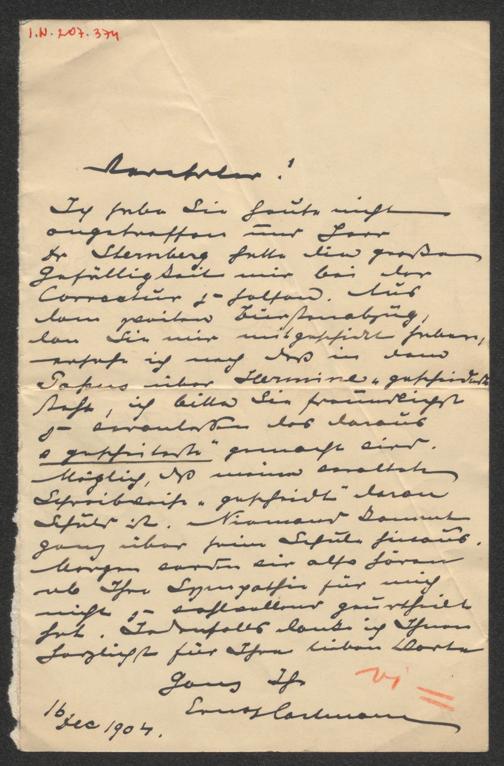 I.N. 207.374
Verehrter!
Ich habe Sie heute nicht
angetroffen und Herr
Dr Sternberg hatte die große
Gefälligkeit mir bei der
Correctur z helfen. Aus
dem zweiten Bürstenabzug,
den Sie mir mitgeschickt haben,
ersehe ich noch daß in dem
Passus über Hermine „gescheidteste
steht, ich bitte Sie freundlichst
z veranlassen das daraus
„gescheiteste" gemacht wird.
Möglich, dß meine veraltete
Schreibweise „gescheidt" daran
Schuld ist. Niemand kommt
ganz über seine Schule hinaus.
Morgen werden wir also hören
ob Ihre Sympathie für mich
nicht z wohlwollend geurtheilt
hat. Jedenfalls danke ich Ihnen
herzlichst für Ihre lieben Worte
Ganz Ihr
16 Dec 1904.